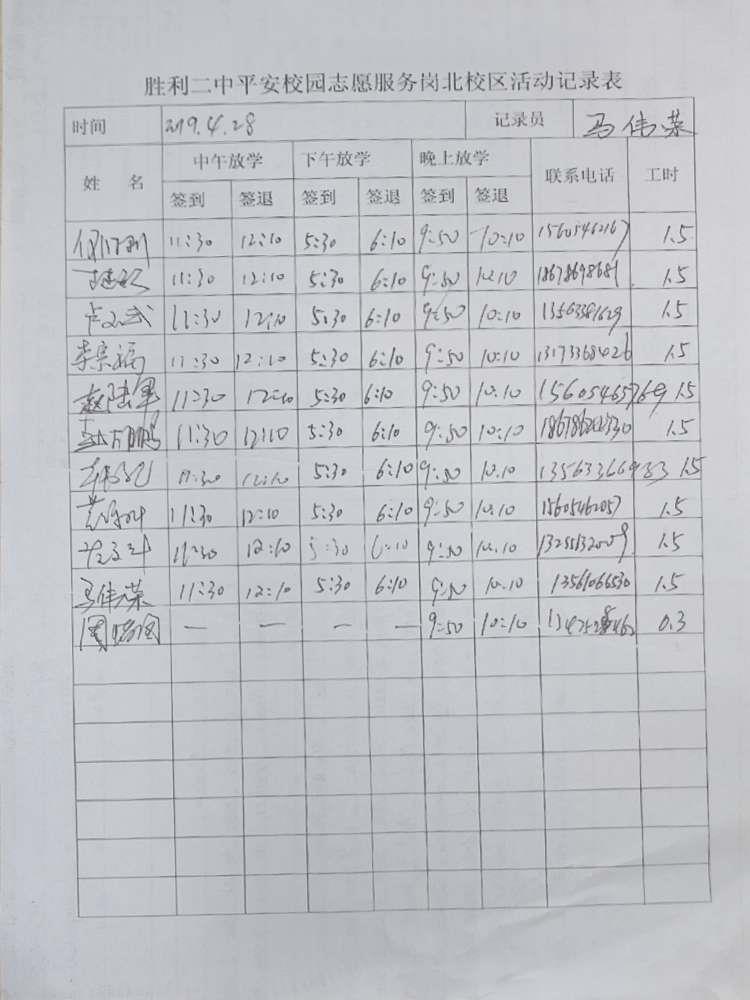 胜利二中平安校园志愿服务岗北校区活动记录表
时间 2019.4.28 记录员 马伟荣
姓 名 中午放学 下午放学 晚上放学 联系电话 工时
签到 签退 签到 签退 签到 签退
11:30 12:10 5:30 6:10 9:50 10:10 1.5
11:30 12:10 5:30 6:10 9:50 10.10 18678698681 1.5
11:30 12:10 5:30 6:10 9:50 10:10 1.5
李宗福 11:30 12:10 5:30 6:10 9:50 10:10 13173368426 1.5
赵陆军 11:30 12:10 5:30 6:10 9:50 10.10 1.5
11:30 12:10 5:30 6:10 9:50 10:10 1.5
11:30 12:10 5:30 6:10 9:50 10.10 1.5
11:30 12:10 5:30 6:10 9:50 10.10 1.5
11:30 12:10 5:30 6:10 9:50 10.10 1.5
马伟荣 11:30 12:10 5:30 6:10 9:50 10.10 13561066530 1.5
— — — — 9:50 10:10 0.3